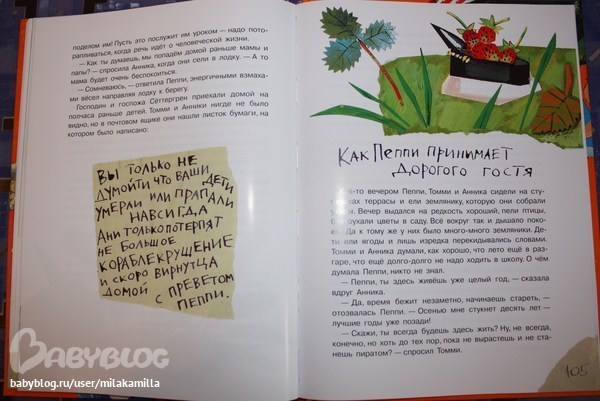 поделом им! Пусть это послужит им уроком — надо пото-
рапливаться, когда речь идёт о человеческой жизни.
— Как ты думаешь, мы попадём домой раньше мамы и
папы? — спросила Анника, когда они сели в лодку. — А то
мама будет очень беспокоиться.
— Сомневаюсь, — ответила Пеппи, энергичными взмаха-
ми вёсел направляя лодку к берегу.
Господин и госпожа Сеттергрен приехали домой на
полчаса раньше детей. Томми и Анники нигде не было
видно, но в почтовом ящике они нашли листок бумаги, на
котором было написано:
ВЫ ТОЛЬКО НЕ
ДУМОЙТИ ЧТО ВАШИ ДЕТИ
УМЕРЛИ ИЛИ ПРАПАЛИ
НАВСИГДА
АНИ ТОЛЬКО ПОТЕРПЯТ
НЕ БОЛЬШОЕ
КОРАБЛЕКРУЩЕНИЕ
И СКОРО ВИРНУТЦА
ДОМОЙ
С ПРЕВЕТОМ
ПЕППИ.
КАК ПЕППИ ПРИНИМАЕТ
ДОРОГОГО ГОСТЯ
то вечером Пеппи, Томми и Анника сидели на сту-
ках террасы и ели землянику, которую они собрали
ром. Вечер выдался на редкость хороший, пели птицы,
ухали цветы в саду. Всё вокруг так и дышало поко-
Да к тому же у них было много-много земляники. Де-
ти ели ягоды и лишь изредка перекидывались словами.
Томми и Анника думали, как хорошо, что лето ещё в раз-
гаре, что ещё долго-долго не надо ходить в школу. О чём
думала Пеппи, никто не знал.
— Пеппи, ты здесь живёшь уже целый год, — сказала
вдруг Анника.
— Да, время бежит незаметно, начинаешь стареть, —
отозвалась Пеппи. — Осенью мне стукнет десять лет —
лучшие годы уже позади!
— Скажи, ты всегда будешь здесь жить? Ну, не всегда,
конечно, но хоть до тех пор, пока не вырастешь и не ста-
нешь пиратом? — спросил Томми.
105
BABYBLOG
babyblog.ru/user/milakamilla